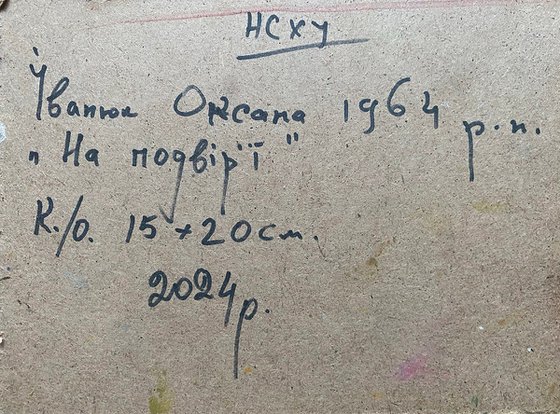 НСХУ
Іванюк Оксана 1964 р.н.
"На подвір'ї"
К./о. 15×20см.
2024р.